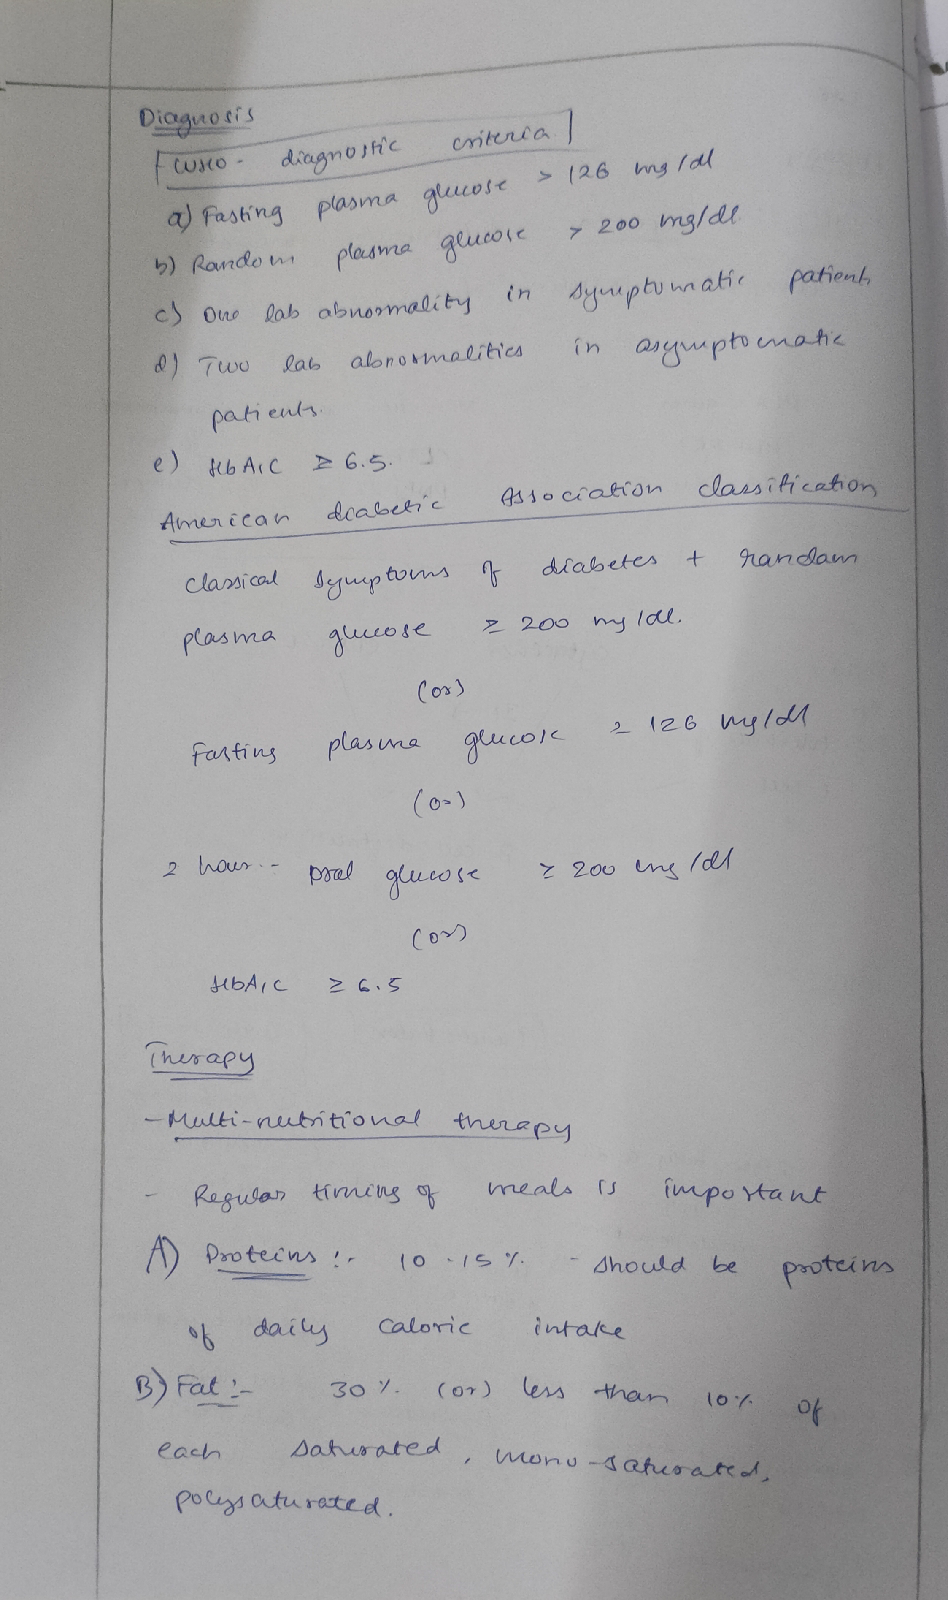 Diagnosis
WHO - diagnostic criteria
a) Fasting plasma glucose > 126 mg/dl
b) Random plasma glucose > 200 mg/dl
c) One lab abnormality in symptomatic patients
d) Two lab abnormalities in asymptomatic
patients.
e) HbA1C ≥ 6.5.
American diabetic Association classification
Classical symptoms of diabetes + random
plasma glucose ≥ 200 mg/dl.
(or)
Fasting plasma glucose ≥ 126 mg/dl
(or)
2 hour - oral glucose ≥ 200 mg/dl
(or)
HbA1C ≥ 6.5
Therapy
- Multi-nutritional therapy
- Regular timing of meals is important
A) Proteins :- 10-15% - should be proteins
of daily caloric intake
B) Fat :- 30% (or) less than 10% of
each saturated, mono-saturated,
polysaturated.